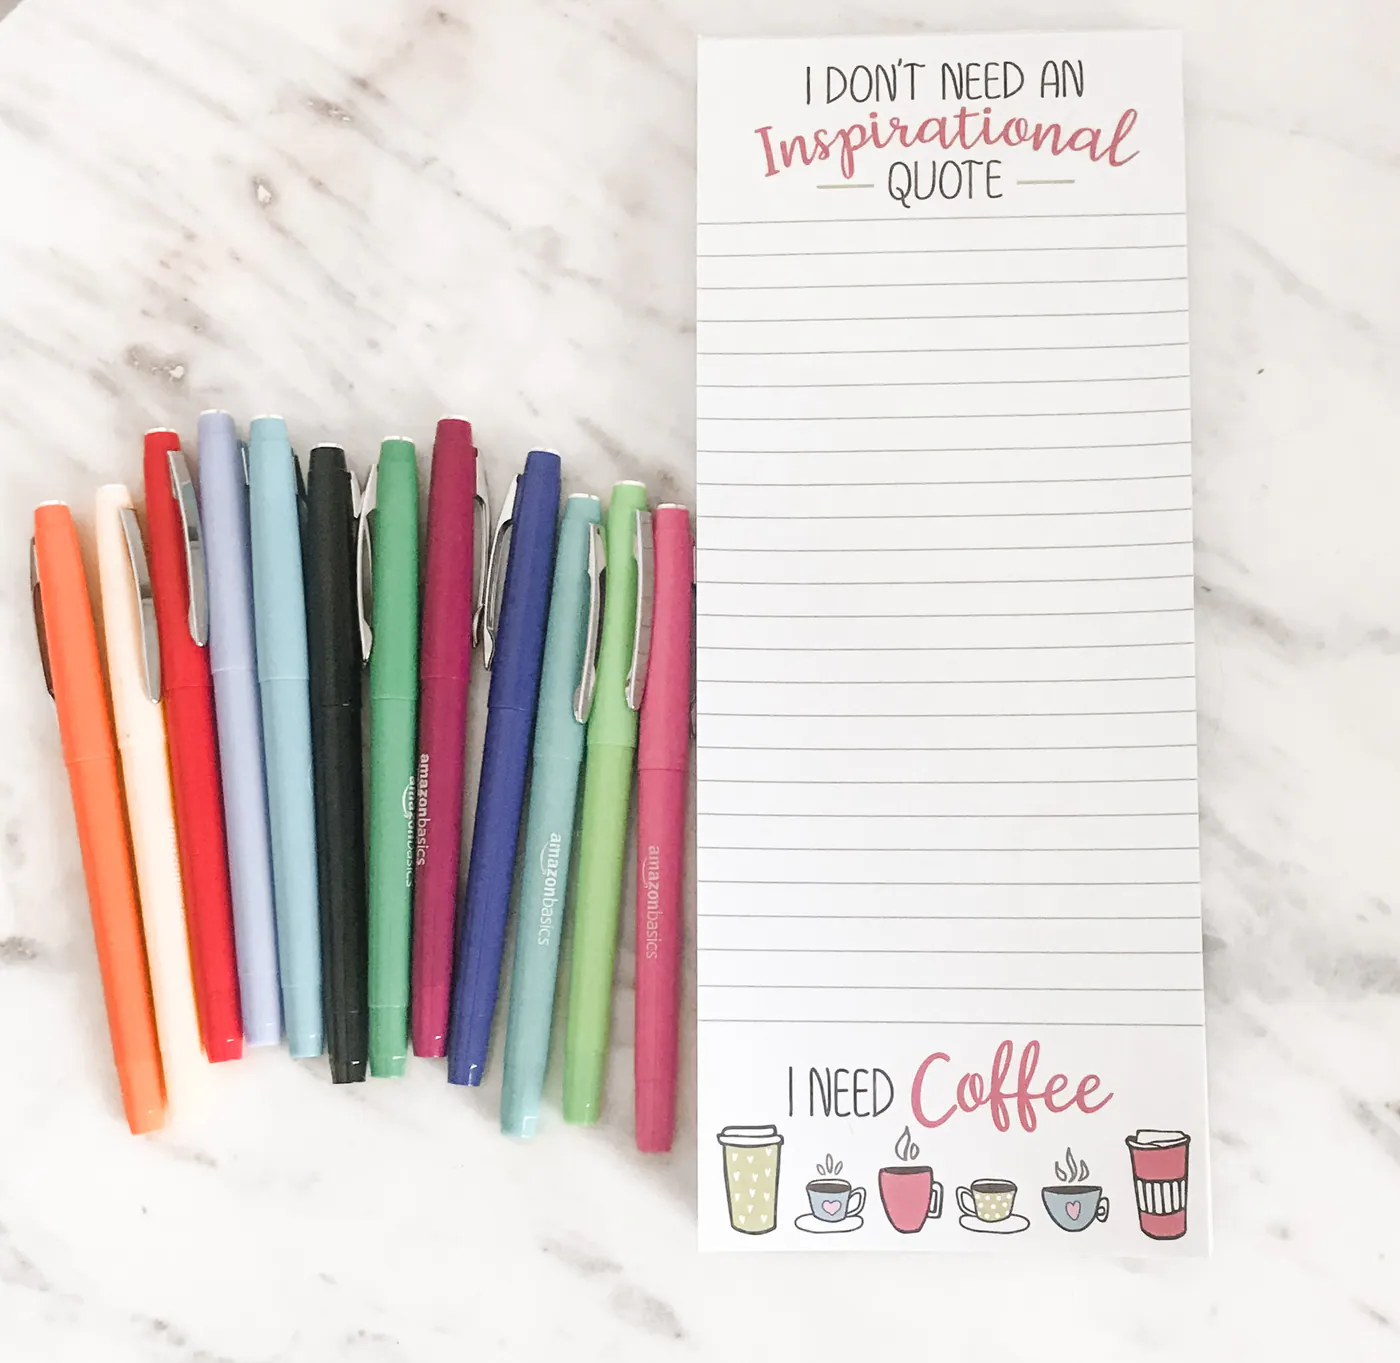 I DON'T NEED AN
Inspirational
QUOTE
amazonbasics
amazonbasics
amazonbasics
amazonbasics
I NEED Coffee